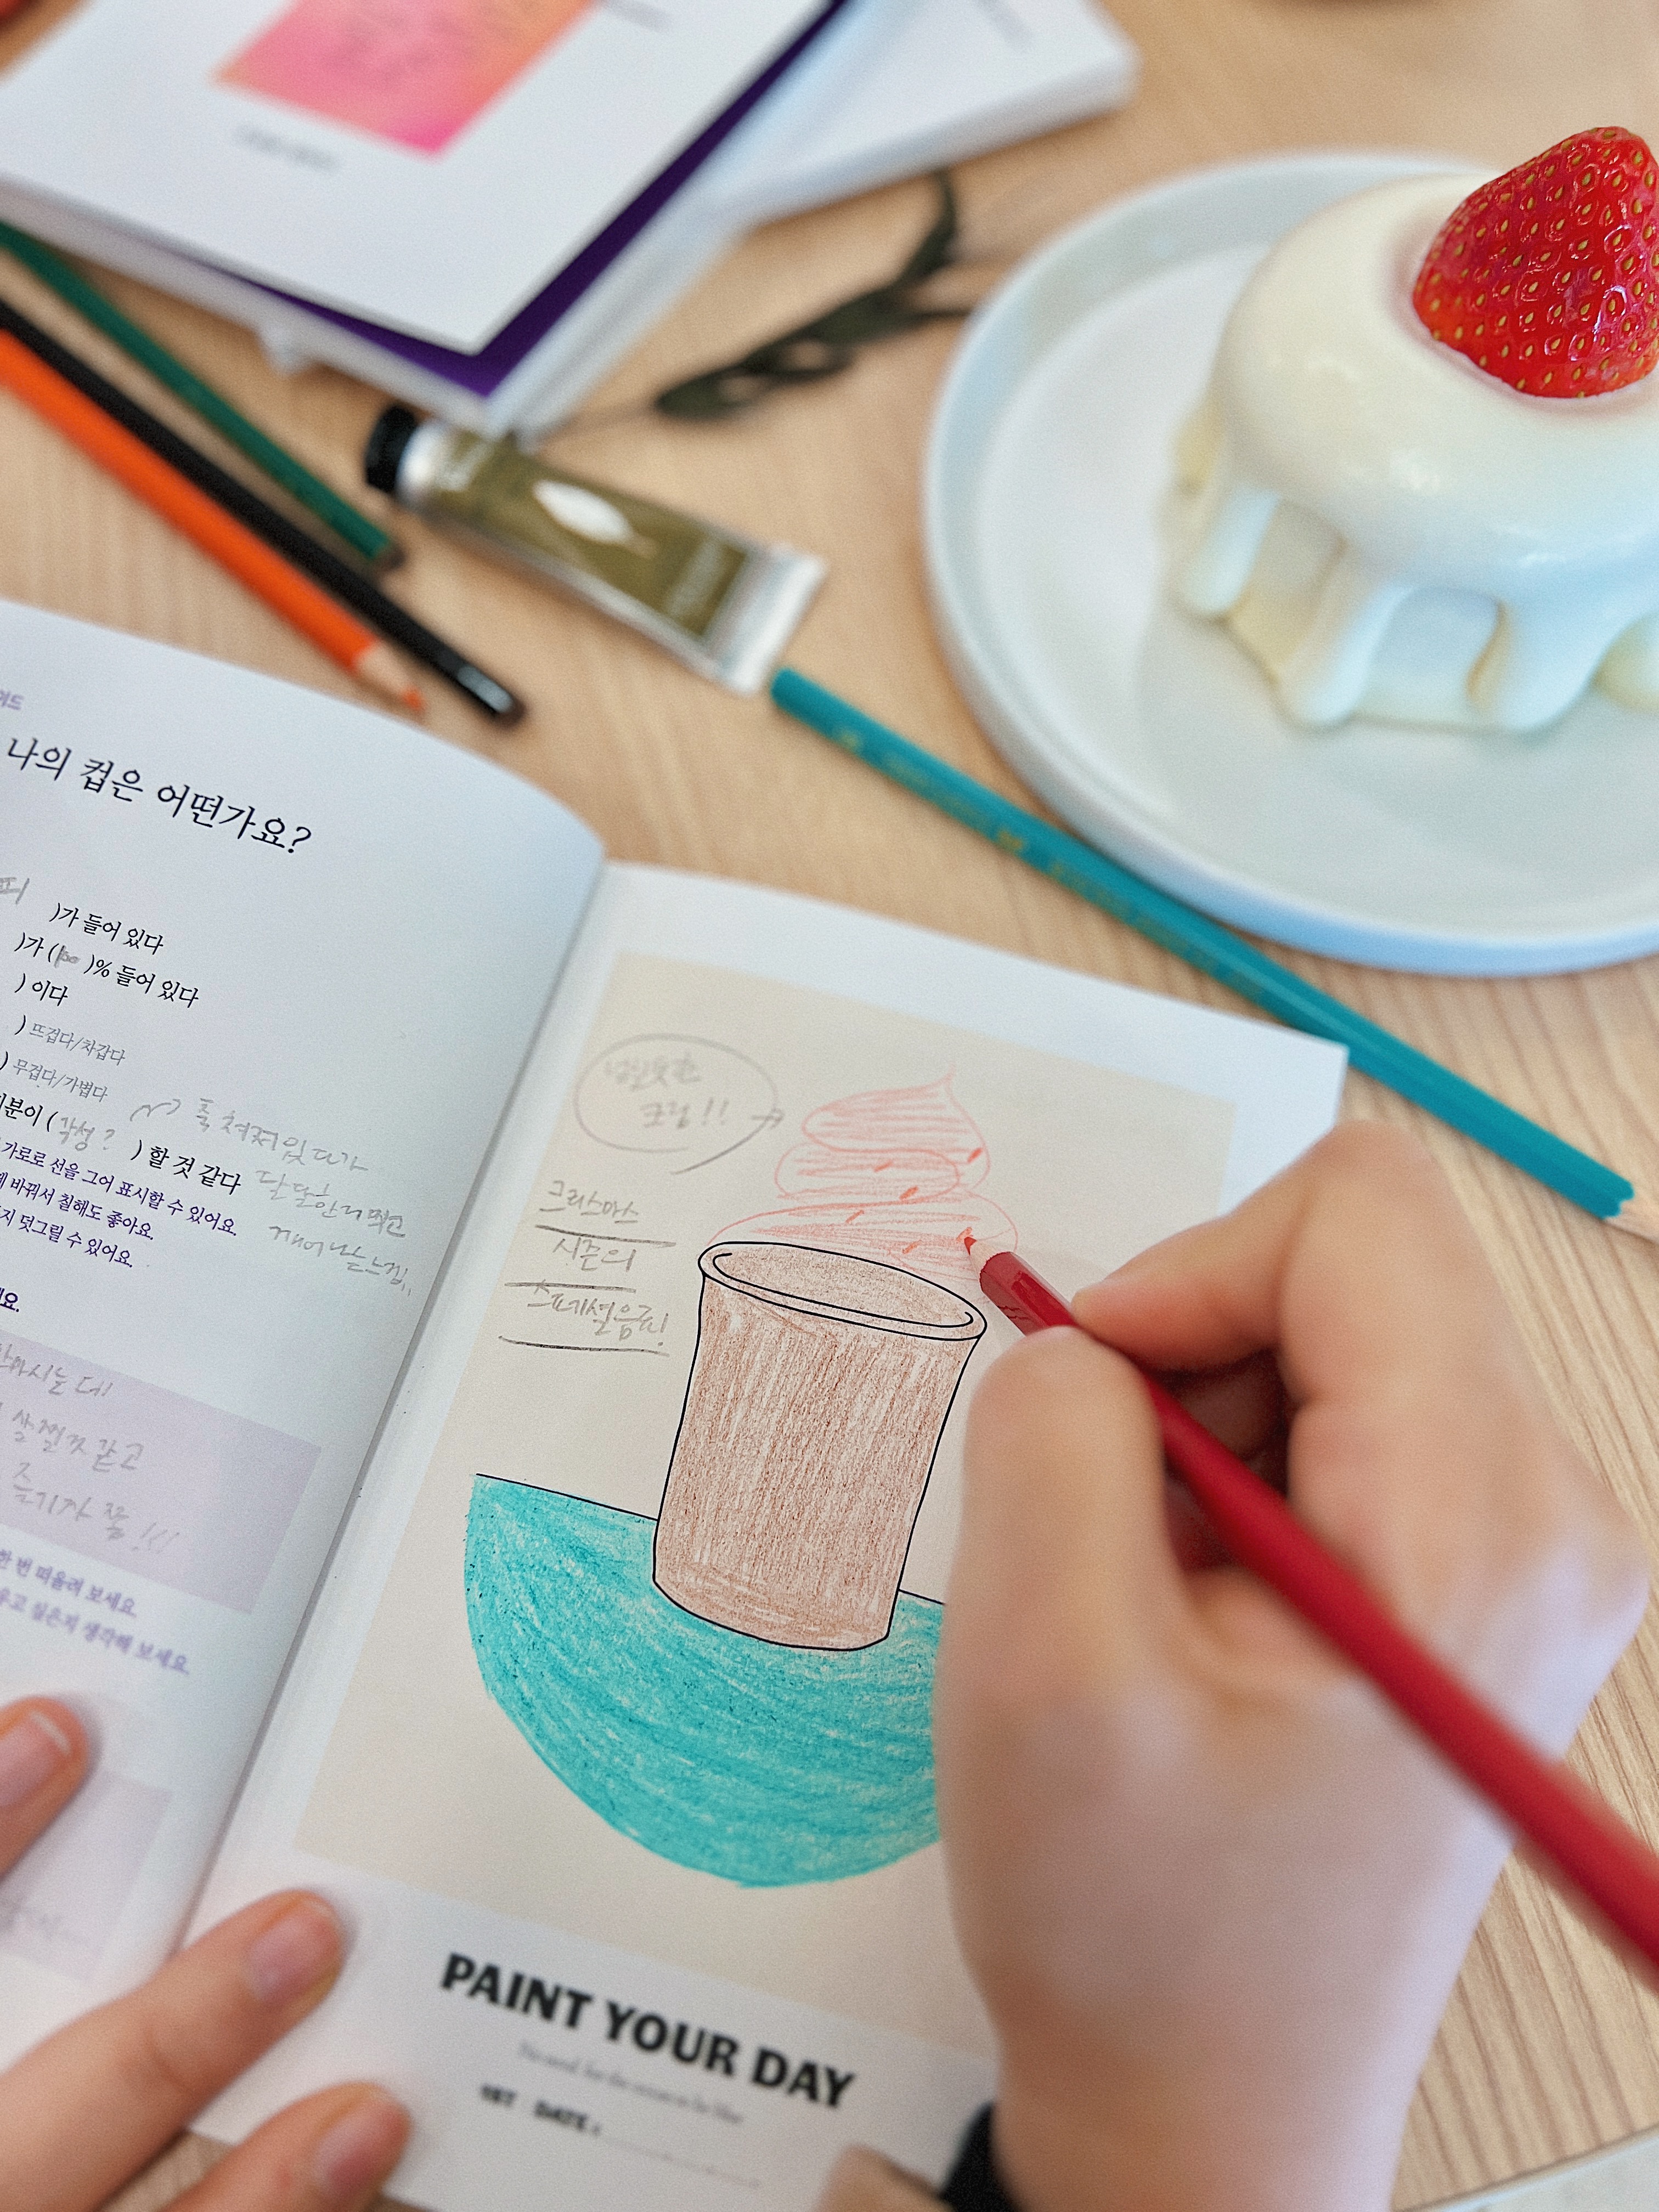 나의 컵은 어떤가요?
)가 들어 있다
)가 (100)% 들어 있다
) 이다
) 뜨겁다/차갑다
) 무겁다/가볍다
기분이 (각성? ) 할 것 같다
축 쳐져있다가
단 달한거 먹고
깨어나는 느낌..
가로로 선을 그어 표시할 수 있어요.
바꿔서 칠해도 좋아요.
덧그릴 수 있어요.
마시는 데!
살찔것 같고
즐기자 쫌!!!
한 번 떠올려 보세요.
싶은지 생각해 보세요.
크림!!
크리스마스
시즌의
스페셜음료!
PAINT YOUR DAY
1ST DATE: